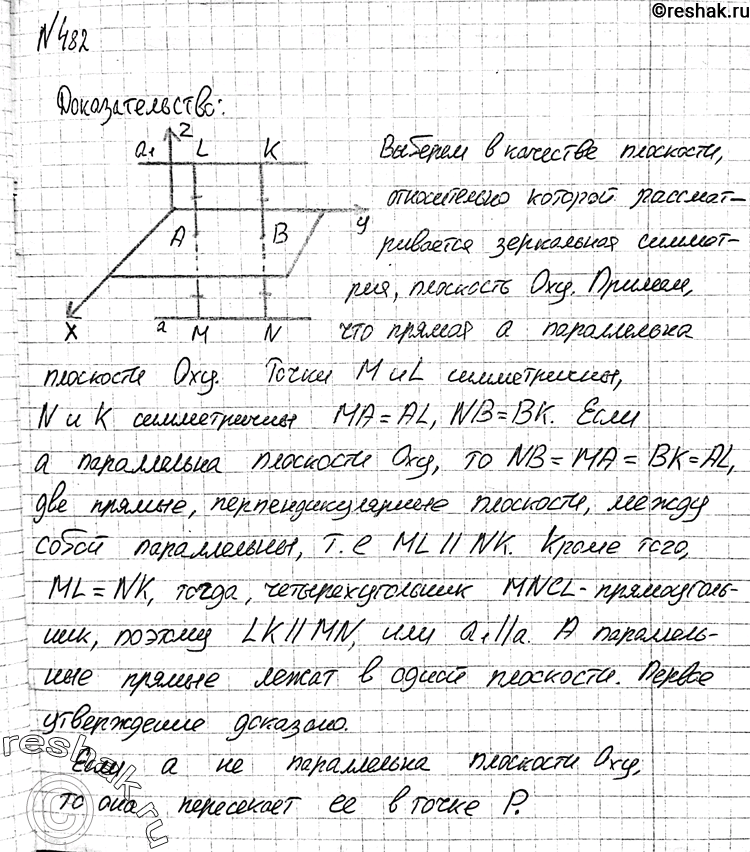 ©reshak.ru
N482
Доказательство:
a₁ z L K
A B y
x a M N
Выберем в качестве плоскости,
относительно которой рассмат-
ривается зеркальная симмет-
рия, плоскость Oxy. Примем,
что прямая a параллельна
плоскости Oxy. Точки M и L симметричны,
N и K симметричны MA=AL, NB=BK. Если
a параллельна плоскости Oxy, то NB=MA=BK=AL,
две прямые, перпендикулярные плоскости, между
собой параллельны, т.е ML∥NK. Кроме того,
ML=NK, тогда, четырехугольник MNCL-прямоуголь-
ник, поэтому LK∥MN, или a₁∥a. А параллель-
ные прямые лежат в одной плоскости. Первое
утверждение доказано.
Если a не параллельна плоскости Oxy,
то она пересекает ее в точке P.
reshak.ru